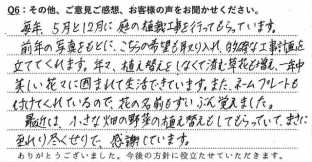 Q6：その他、ご意見ご感想、お客様の声をお聞かせください。
毎年、5月と12月に庭の植栽工事を行ってもらっています。
前年の写真をもとに、こちらの希望も取り入れ、的確な工事計画を
立ててくれます。年々、植え替えをしなくて済む草花が増え、一年中
美しい花々に囲まれて生活できています。また、ネームプレートも
付けてくれているので、花の名前もずいぶん覚えました。
最近は、小さな畑の野菜の植え替えもしてもらっていて、まさに
至れり尽くせりで、感謝しています。
ありがとうございました。今後の方針に役立たせていただきます。